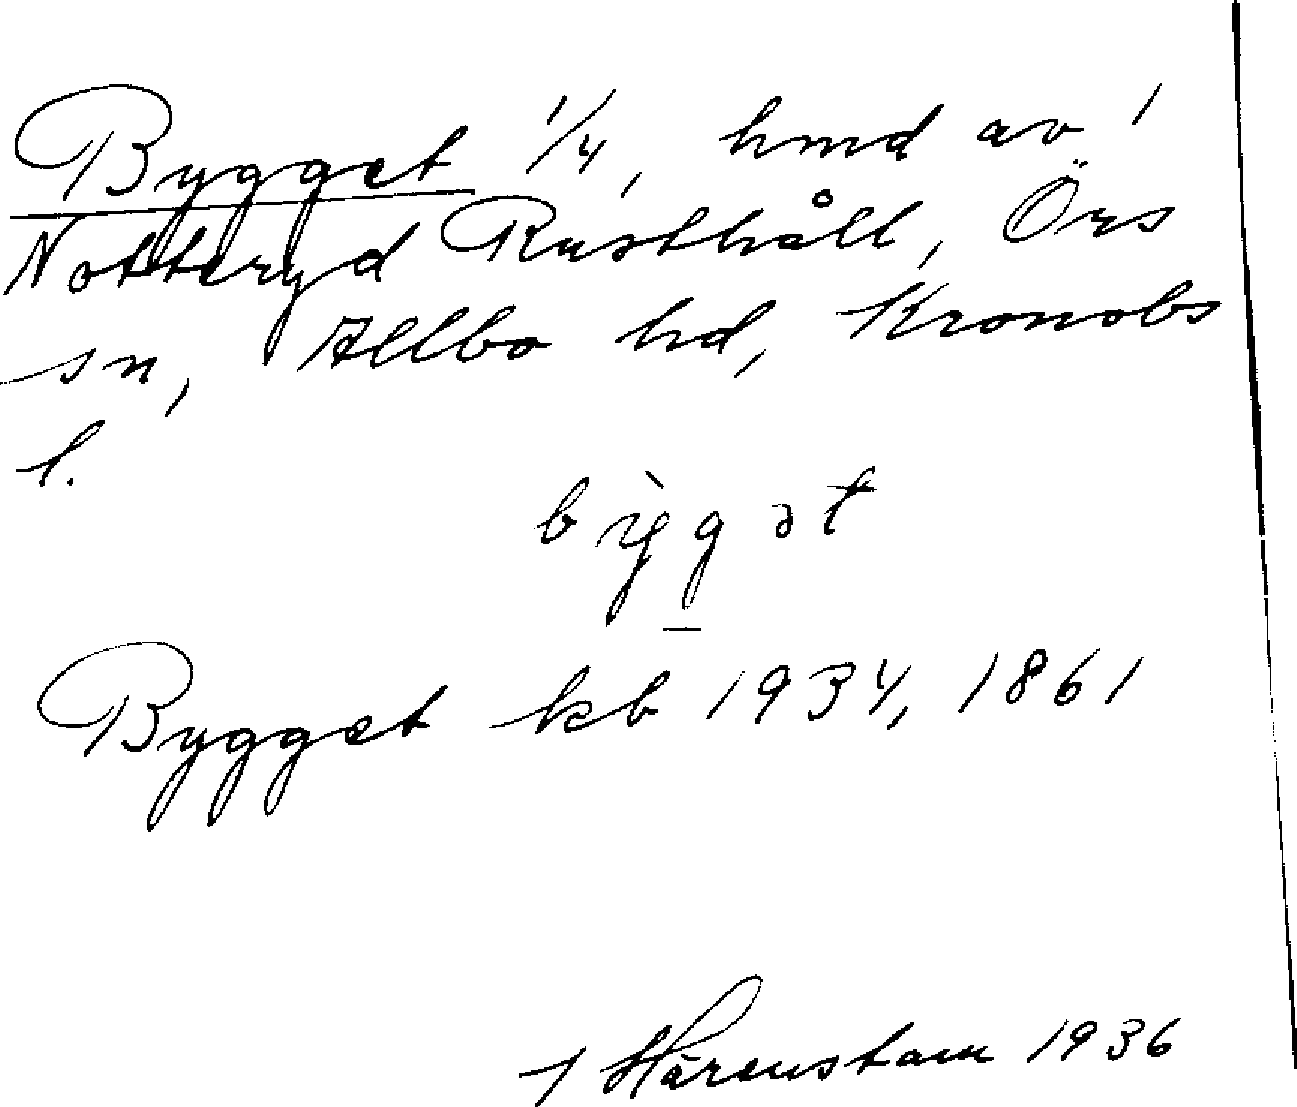 Bygget 1/4, hmd av 1
Notteryd Rusthåll, Örs
sn, Allbo hd, Kronobs
l.
bỳg̲ət
Bygget kb 1934, 1861
J Härenstam 1936